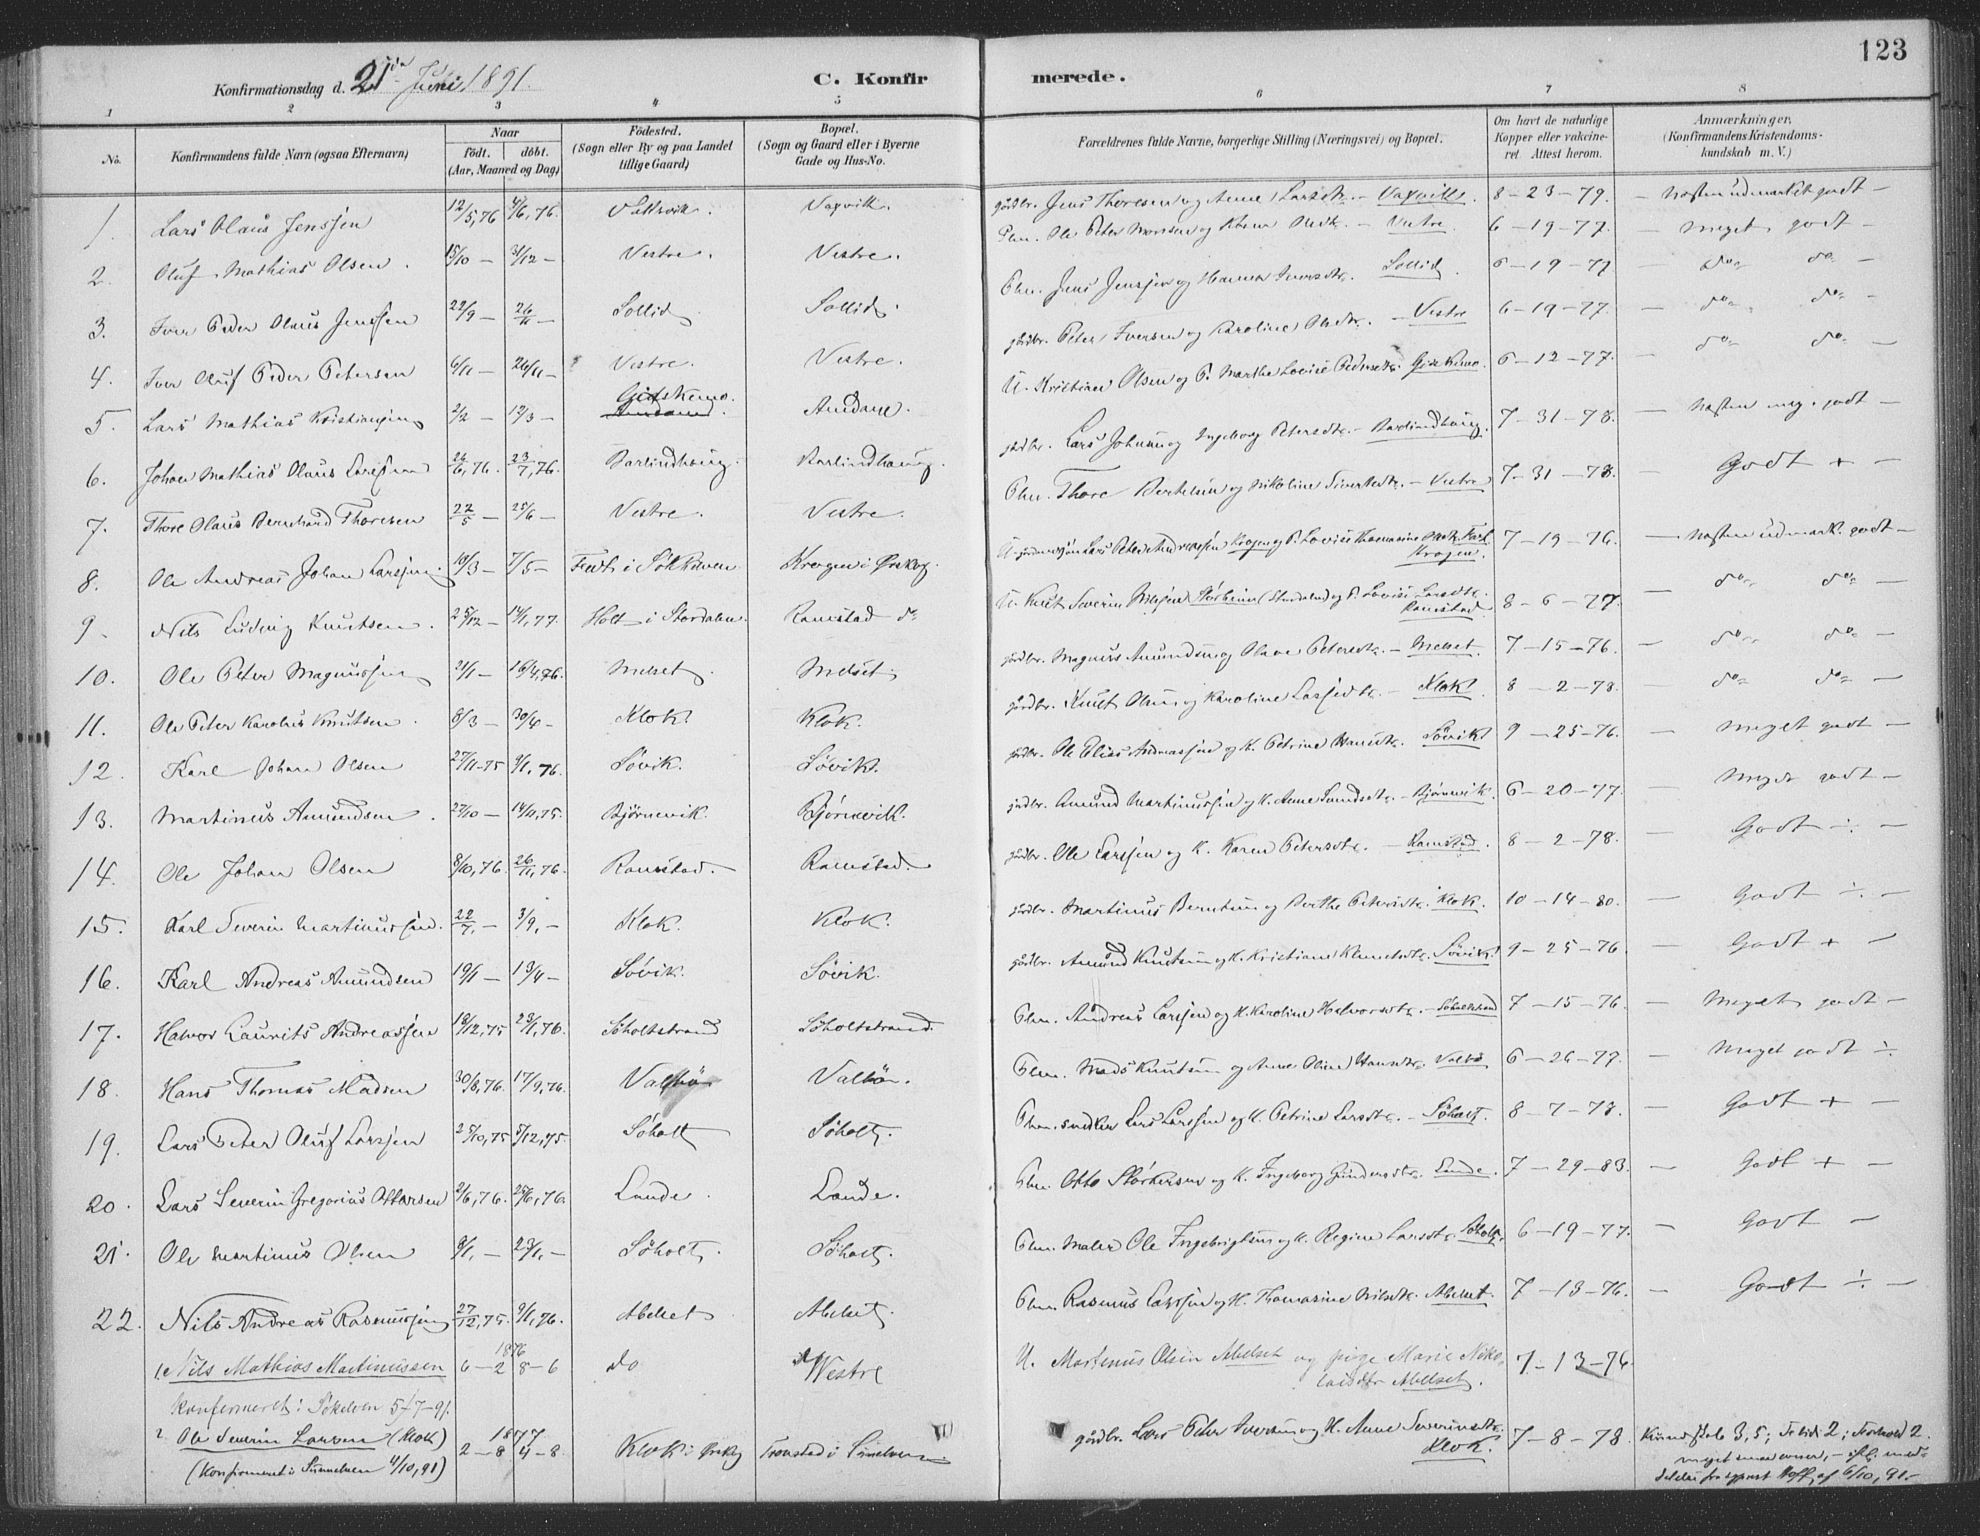 123
Konfirmationsdag d. 21de Juni 1891.
C. Konfirmerede.
1 2 3 4 5 6 7 8
No.
Konfirmandens fulde Navn (ogsaa Efternavn)
Naar
födt. döbt.
(Aar, Maaned og Dag)
Födested.
(Sogn eller By og paa Landet
tillige Gaard)
Bopæl.
(Sogn og Gaard eller i Byerne
Gade og Hus-No.
Forældrenes fulde Navne, borgerlige Stilling (Næringsvei) og Bopæl.
Om havt de naturlige
Kopper eller vakcine-
ret. Attest herom.
Anmærkninger.
(Konfirmandens Kristendoms-
kundskab m. V.)
1. Lars Olaus Jenssen 12/5,76 4/6,76. Vaksvik. Vaxvik. gårdbr. Jens Thoresen og Anne Larsdtr. – Vaxvik 8–23–79. – Næsten udmærket godt –
2. Oluf Mathias Olsen. 15/10 – 31/12 – Vestre. Vestre. Plm. Ole Peter Monsen og Olsdtr. – Vestre. 6–19–77. – Meget godt –
3. Iver Peder Olaus Jenssen 22/9 – 26/11 – Sollid Sollid. Plm. Jens Jenssen og Hanna Iversdtr. Sollid. 6–19–77 – do do –
4. Iver Oluf Peder Petersen 6/11 – 26/11 – Vestre. Vestre. gårdbr. Peter Iversen og Karoline Olsdtr. – Vestre 6–19–77. – do do –
5. Lars Mathias Kristiansen 2/2 – 12/3 – Gjetskemo. Amdam. U. Kristian Olsen og P. Marthe Lovise Pedersdtr. 6–12–77. – do do –
6. Johan Mathias Olaus Larssen 26/6,76. 23/7,76. Barlindhaug. Barlindhaug. gårdbr. Lars Johnsen og Ingeborg Petersdtr. – Barlindhaug. 7–31–78. – Næsten meg. godt –
7. Thore Olaus Bernhard Thoresen 22/5 – 25/6 – Vestre. Vestre. Plm. Thore Bertelsen og Nikoline Sivertsdtr. – Vestre 7–31–78. – Godt + –
8. Ole Andreas Johan Larssen 18/3 – 7/5 – i Sökkelven Krogen i Ørskog. U. Lars Peter Andreassen Krogen og P. Lovise Thomasine Krogen. 7–19–76. – Næsten udmærk. godt –
9. Nils Ludvig Knutsen. 25/12 – 14/1,77. Holt i Stordalen. Ramstad do U. Knut Severin Storheim (Stordalen) og P. Lovise Larsdtr. Ramstad 8–6–77. – do do –
10. Ole Peter Magnussen 21/1 – 16/4,76. Melset. Melset. gårdbr. Magnus Amundsen og Olave Petersdtr. – Melset. 7–15–76. – do do –
11. Ole Peter Karolus Knutsen. 8/3 – 30/4 – Klok. Klok. gårdbr. Knut Olsen og Karoline Larsdtr. – Klok 8–2–78. – do do –
12. Karl Johan Olsen 27/11–75 9/1,76. Søvik. Søvik. gårdbr. Ole Elias Andreassen og K. Petrine Hansdtr. Søvik 9–25–76. – Meget godt –
13. Martinus Amundsen. 27/10 – 14/11,75. Bjørnevik. Bjørnevik. gårdbr. Amund Martinussen og K. Anne – Bjørnevik. 6–20–77. – Meget godt –
14. Ole Johan Olsen 8/10,76. 26/11,76. Ramstad. Ramstad. gårdbr. Ole Larssen og K. Karen Petersdtr. – Ramstad. 8–2–78. – Godt ÷ –
15. Karl Severin Martinussen. 22/7, – 3/9, – Klok. Klok. gårdbr. Martinus Berntsen og Berthe Petersdtr. Klok. 10–14–80. – Godt ÷ –
16. Karl Andreas Amundsen – – Søvik. Søvik. gårdbr. Amund Knutsen og K. Kristiane Søvik. 9–25–76. – Godt + –
17. Halvor Laurits Andreassen 18/12,75 23/1,76. Söholtstrand Söholtstrand. Plm. Andreas Larssen og K. Karoline Halvorsdtr. – Söholtstrand 7–15–76. – Meget godt –
18. Hans Thomas Madsen 30/8,76. 17/9,76. Valbö Valbö. Plm. Mads Knutsen og Anne Oline Hansdtr. Valbö 6–26–77. – Meget godt ÷
19. Lars Peter Oluf Larssen 25/10,75 5/12,75. Söholt Söholt. Plm. smed Lars Larssen og K. Petrine Larsdtr. – Söholt. 8–7–78. – Godt + –
20. Lars Severin Gregorius Ottosen 2/6,76. 25/6,76. Lande. Lande. Plm. Otto Størkersen og K. Ingeborg Gundersdtr. Lande. 7–29–83. – Godt + –
21. Ole Martinus Olsen 9/1, – 23/1, – Söholt. Söholt. Plm. Maler Ole Ingebrigtsen og K. Regine Larsdtr. Söholt. 6–19–77. – Godt –
22. Nils Andreas Rasmussen 27/12,75. 9/1,76. Abelset Abelset. Plm. Rasmus Larssen og K. Thomasine Nilsdtr. Abelset. 7–13–76. – Godt ÷ –
1. Nils Mathias Martinussen 1876 6–2 8–6 do Westre U. Martinus Olsen Abelset og pige Marie Niko- 7–13–76.
laisdtr Abelset.
Konfirmeret i Sökelven 5/7–91.
2 Ole Severin Larsen (Klok) 1877 2–8 4–8. Klok i Ørskog Tronstad i gårdbr. Lars Peter Iversen og K. Anne Severinsdtr. 7–8–78. Kundskab 3,5; Flid 2; Forhold 2.
Klok.
(Konfirmert i Sunnelven 4/10,91)
6/10, 91.–